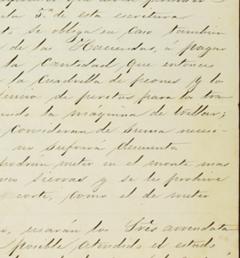 ta 3.ª de esta escritura
se obliga en caso tambien
de las Haciendas, á pagar
la cantidad que entonces
la cuadrilla de peones y lo
de peritos para la tra
la máquina de trillar;
Consideran de suma nece
no sufrirá demento
podrán meter en el monte mas
sierras y se les prohive
corte, como el de meter
usarán los Tres arrendata
posible atendido el estado